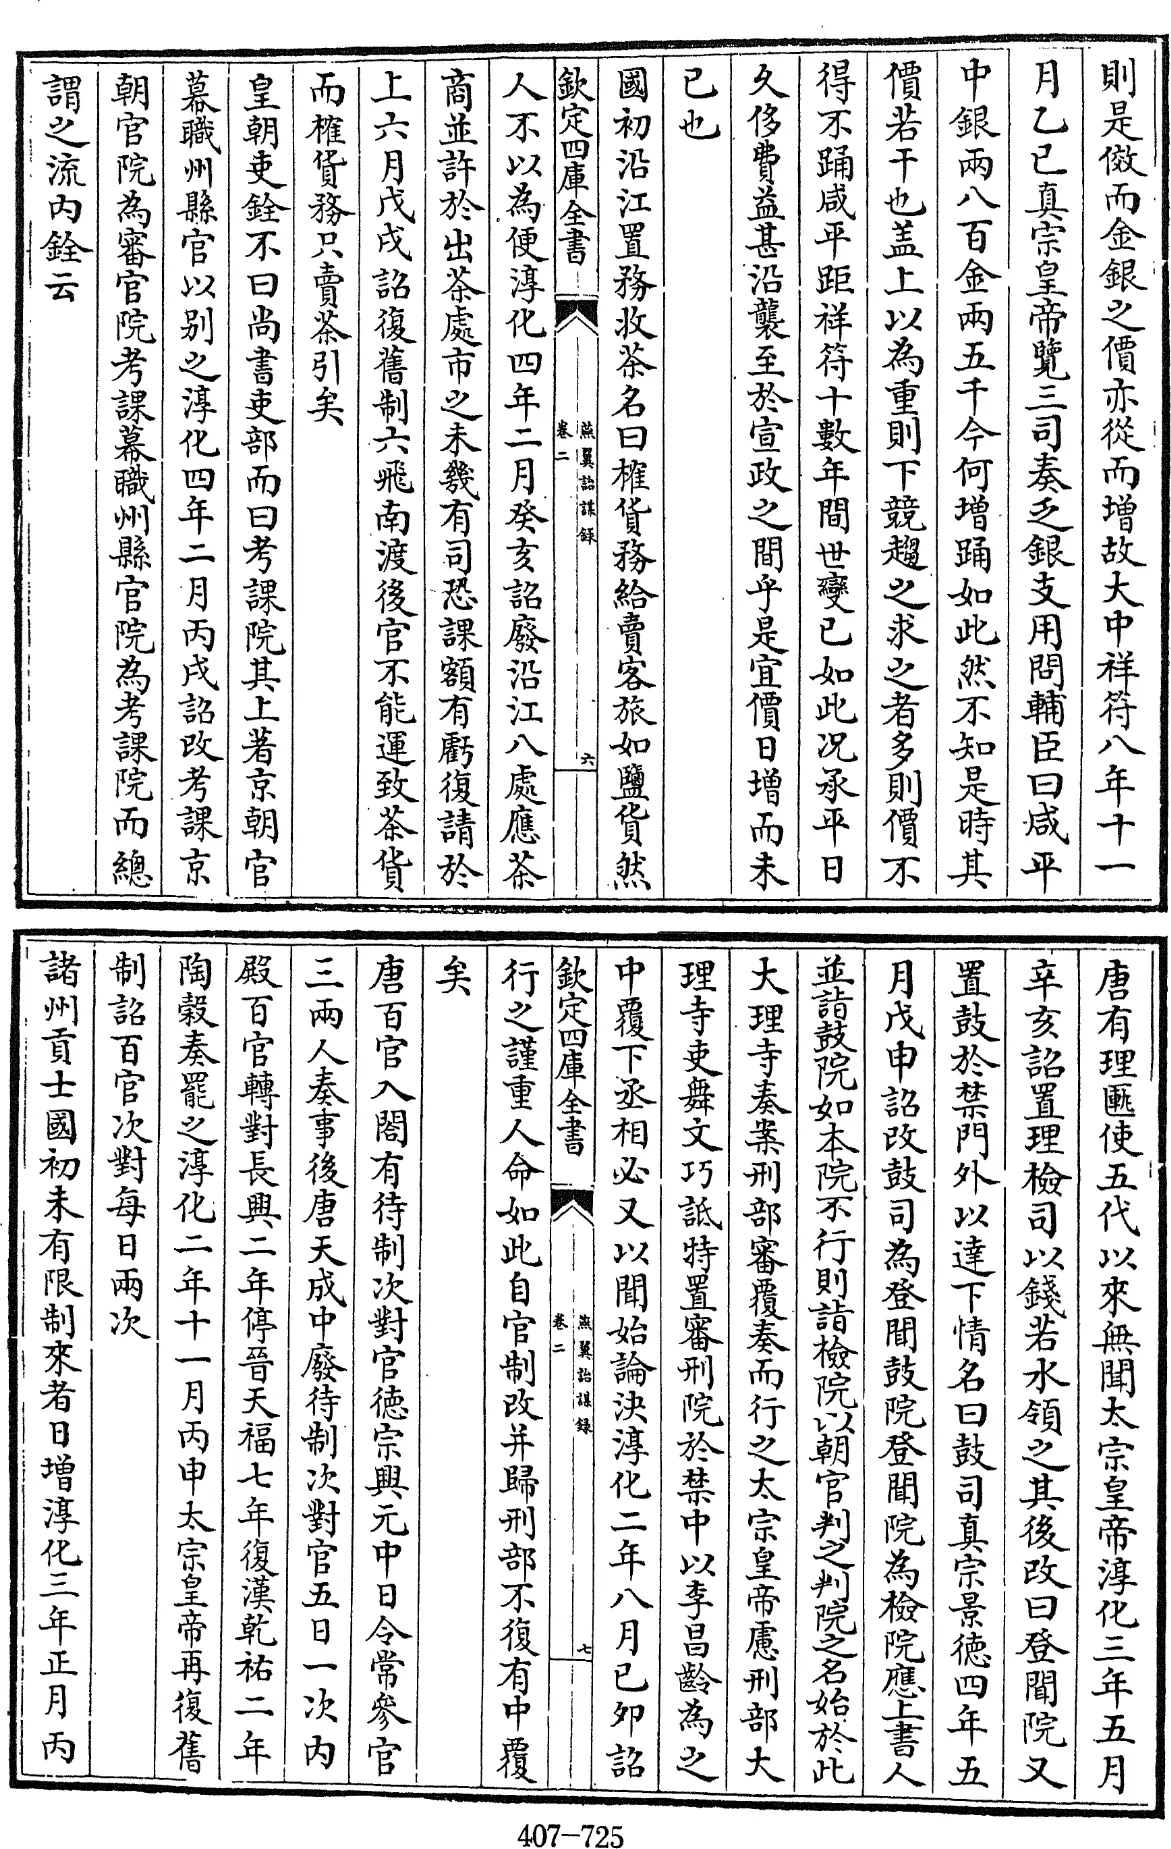 則是傚而金銀之價亦從而增故大中祥符八年十一
月乙巳真宗皇帝覽三司奏乏銀支用問輔臣曰咸平
中銀兩八百金兩五千今何增踊如此然不知是時其
價若干也盖上以為重則下競趨之求之者多則價不
得不踊咸平距祥符十數年間世變已如此况承平日
乆侈費益甚沿襲至於宣政之間乎是宜價日增而未
已也
國初沿江置務收茶名曰榷貨務給賣客旅如鹽貨然
欽定四庫全書
燕翼詒謀錄
卷二
六
人不以為便淳化四年二月癸亥詔廢沿江八處應茶
商並許於出茶處市之未幾有司恐課額有虧復請於
上六月戊戌詔復舊制六飛南渡後官不能運致茶貨
而榷貨務只賣茶引矣
皇朝吏銓不曰尚書吏部而曰考課院其上著京朝官
幕職州縣官以别之淳化四年二月丙戌詔改考課京
朝官院為審官院考課幕職州縣官院為考課院而總
謂之流内銓云
唐有理匭使五代以來無聞太宗皇帝淳化三年五月
辛亥詔置理檢司以錢若水領之其後改曰登聞院又
置鼓於禁門外以達下情名曰鼓司真宗景德四年五
月戊申詔改鼓司為登聞鼓院登聞院為檢院應上書人
並詣鼓院如本院不行則詣檢院以朝官判之判院之名始於此
大理寺奏案刑部審覆奏而行之太宗皇帝慮刑部大
理寺吏舞文巧詆特置審刑院於禁中以李昌齡為之
中覆下丞相必又以聞始論決淳化二年八月已夘詔
欽定四庫全書
燕翼詒謀錄
卷二
七
行之謹重人命如此自官制改并歸刑部不復有中覆
矣
唐百官入閤有待制次對官德宗興元中日令常參官
三兩人奏事後唐天成中廢待制次對官五日一次内
殿百官轉對長興二年停晉天福七年復漢乾祐二年
陶穀奏罷之淳化二年十一月丙申太宗皇帝再復舊
制詔百官次對每日兩次
諸州貢士國初未有限制來者日增淳化三年正月丙
407-725